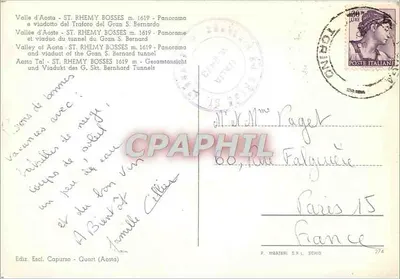 Valle d'Aosta - ST. RHEMY BOSSES m. 1619 - Panorama
e viadotto del Traforo del Gran S. Bernardo
Vallée d'Aoste - ST. RHEMY BOSSES m. 1619 - Panorame
et viaduc du tunnel du Grand S. Bernard
Valley of Aosta - ST. RHEMY BOSSES m. 1619 - Panorama
and viaduct of the Grand S. Bernard Tunnel
Aosta Tal - ST. RHEMY BOSSES 1619 m - Gesamtansicht
und Viadukt des G. Skt. Bernhard Tunnels
POSTE ITALIANE
TORINO
de bonnes
vacances avec :
batailles de neige,
coups de soleil
un peu de
et du bon vin
A Bientôt
Famille
CPAPHIL
Mr Mme Vaget
60, Rue Falguière
Paris 15
France
Ediz. Escl. Caparso - Quart (Aosta)
374